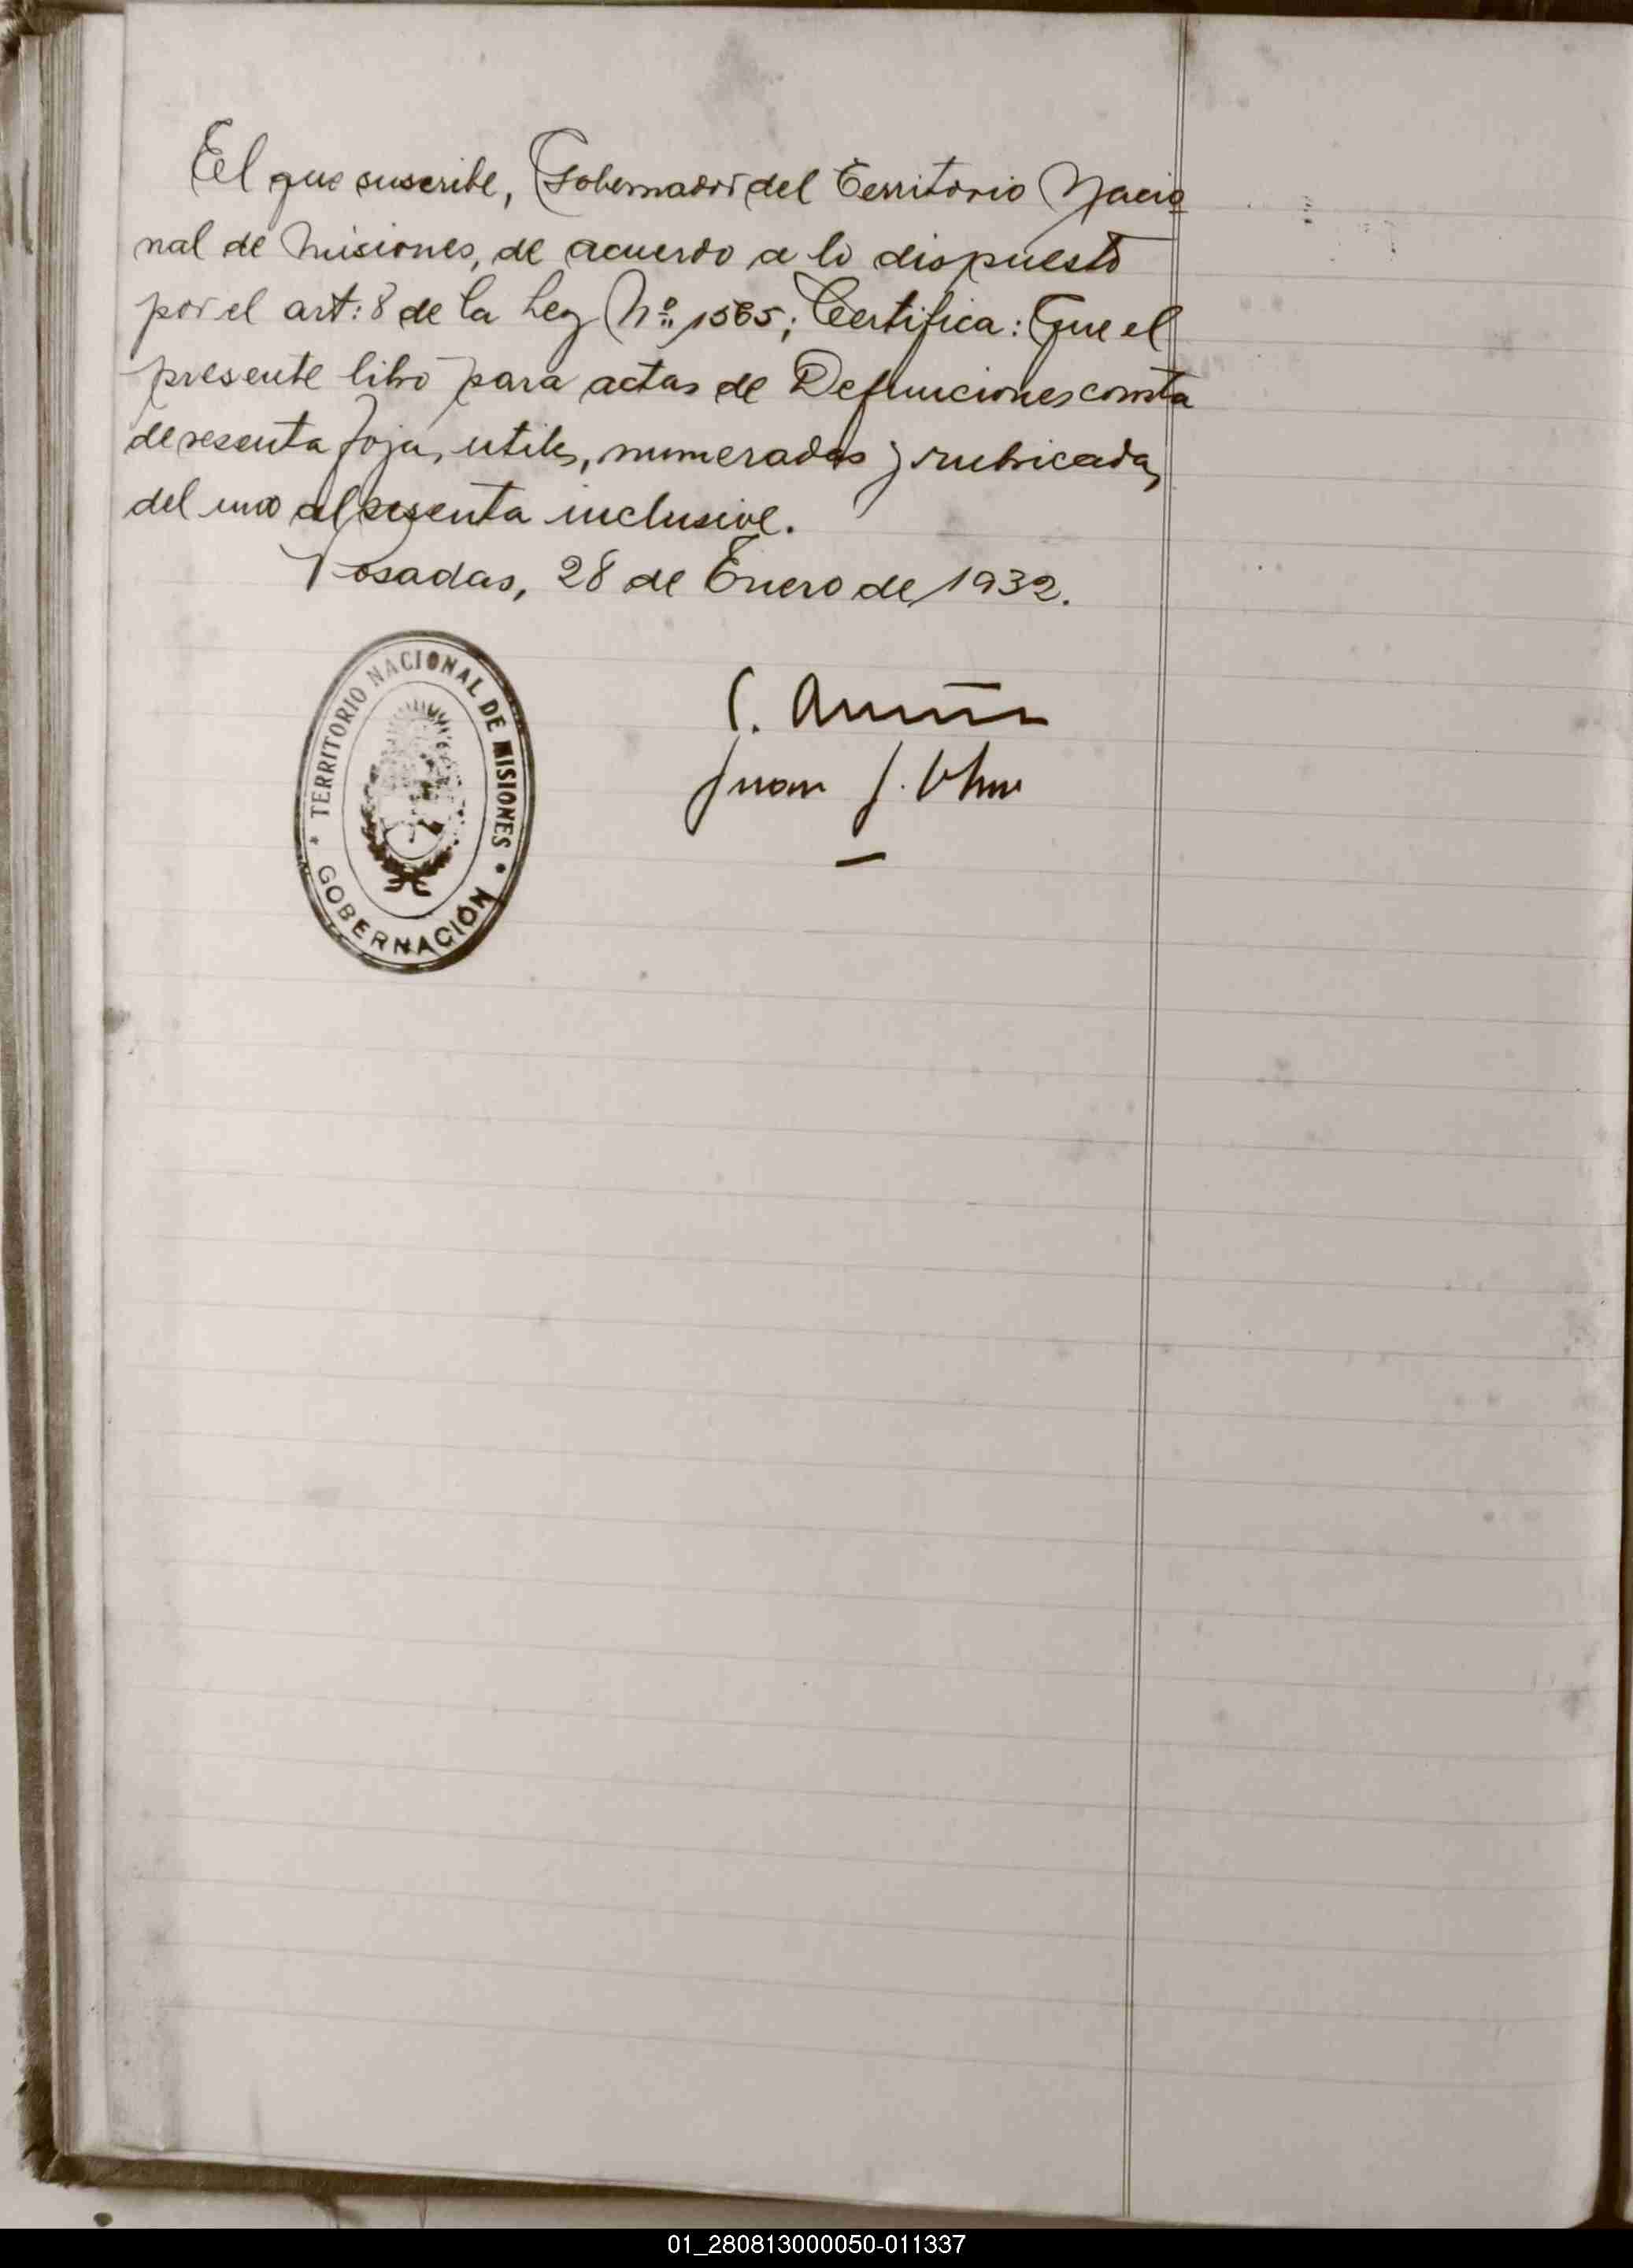 El que suscribe, Gobernador del Territorio Nacio
nal de Misiones, de acuerdo a lo dispuesto
por el art: 8 de la Ley Nº 1565; Certifica: Que el
presente libro para actas de Defunciones consta
de sesenta fojas utiles, numeradas y rubricadas
del uno al sesenta inclusive.
Posadas, 28 de Enero de 1932.
TERRITORIO NACIONAL DE MISIONES
GOBERNACIÓN
Juan J.
01_280813000050-011337